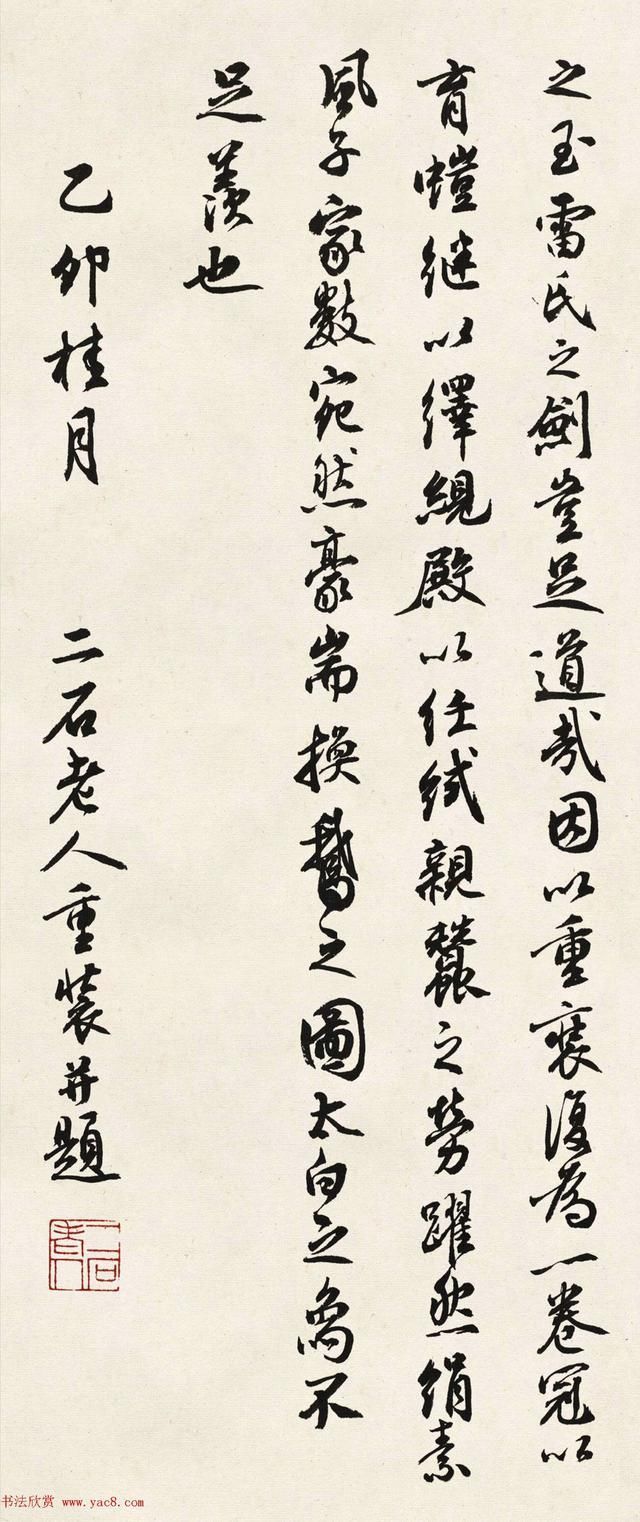 之玉雷氏之劍豈足道哉因以重裝復為一卷冠以
育螘继以繹繉殿以任絨親蠶之勞躍然絹素
風子家數宛然豪耑换鵞之圖太白之为不
足羨也
乙卯桂月
二石老人重裝并題
书法欣赏 www.yac8.com